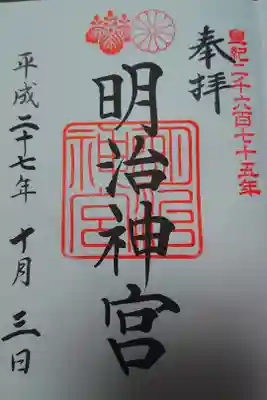 皇紀二千六百七十五年
奉拝
明治神宮
明治神宮
平成二十七年 十月 三日